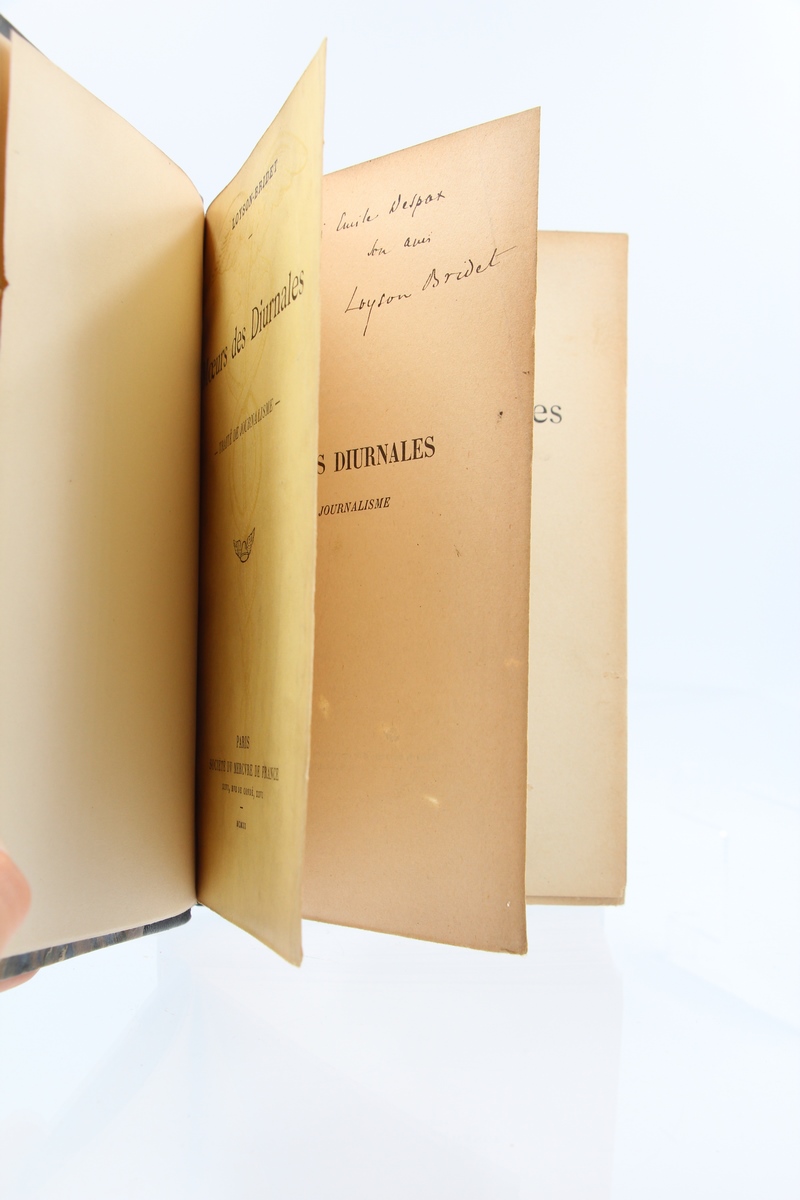 LOYSON-BRIDET
Mœurs des Diurnales
— TRAITÉ DE JOURNALISME —
PARIS
SOCIÉTÉ DU MERCVRE DE FRANCE
XXVI, RVE DE CONDÉ, XXVI
Emile Despax
son ami
Loyson Bridet
S DIURNALES
JOURNALISME
es